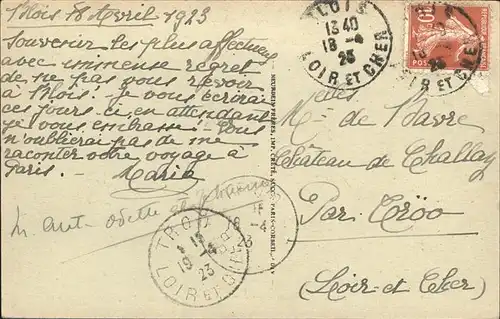 Blois 18 Avril 1923
Souvenir les plus affectueux
avec immense regret
de ne pas vous revoir
à Blois! Je vous écrirai
ces jours-ci, en attendant
je vous embrasse! Vous
n'oublierai pas de me
raconter votre voyage à
Paris. - Marie
BLOIS
13 40
18 -4
23
LOIR ET CHER
Melles
de Bavre
Château de Challay
Par Tröo
(Loir et Cher)
TROO
19 -4
23
LOIR ET CHER
18
-4
23